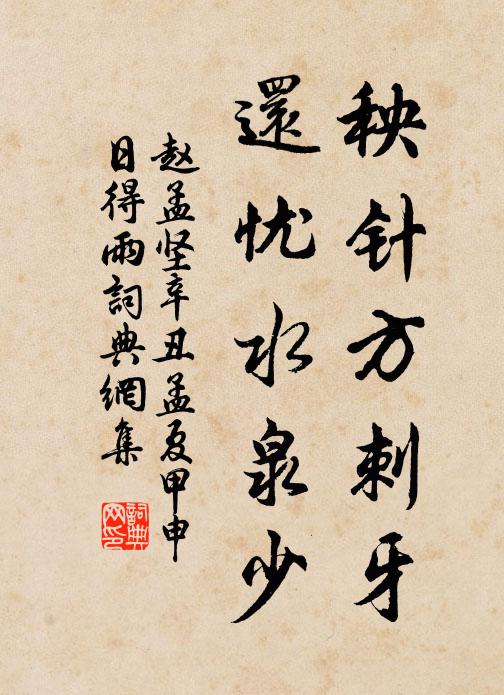 秧针方刺牙
還忧水泉少
赵孟坚辛丑孟夏甲申
日得雨詞典網集
詞典
网印